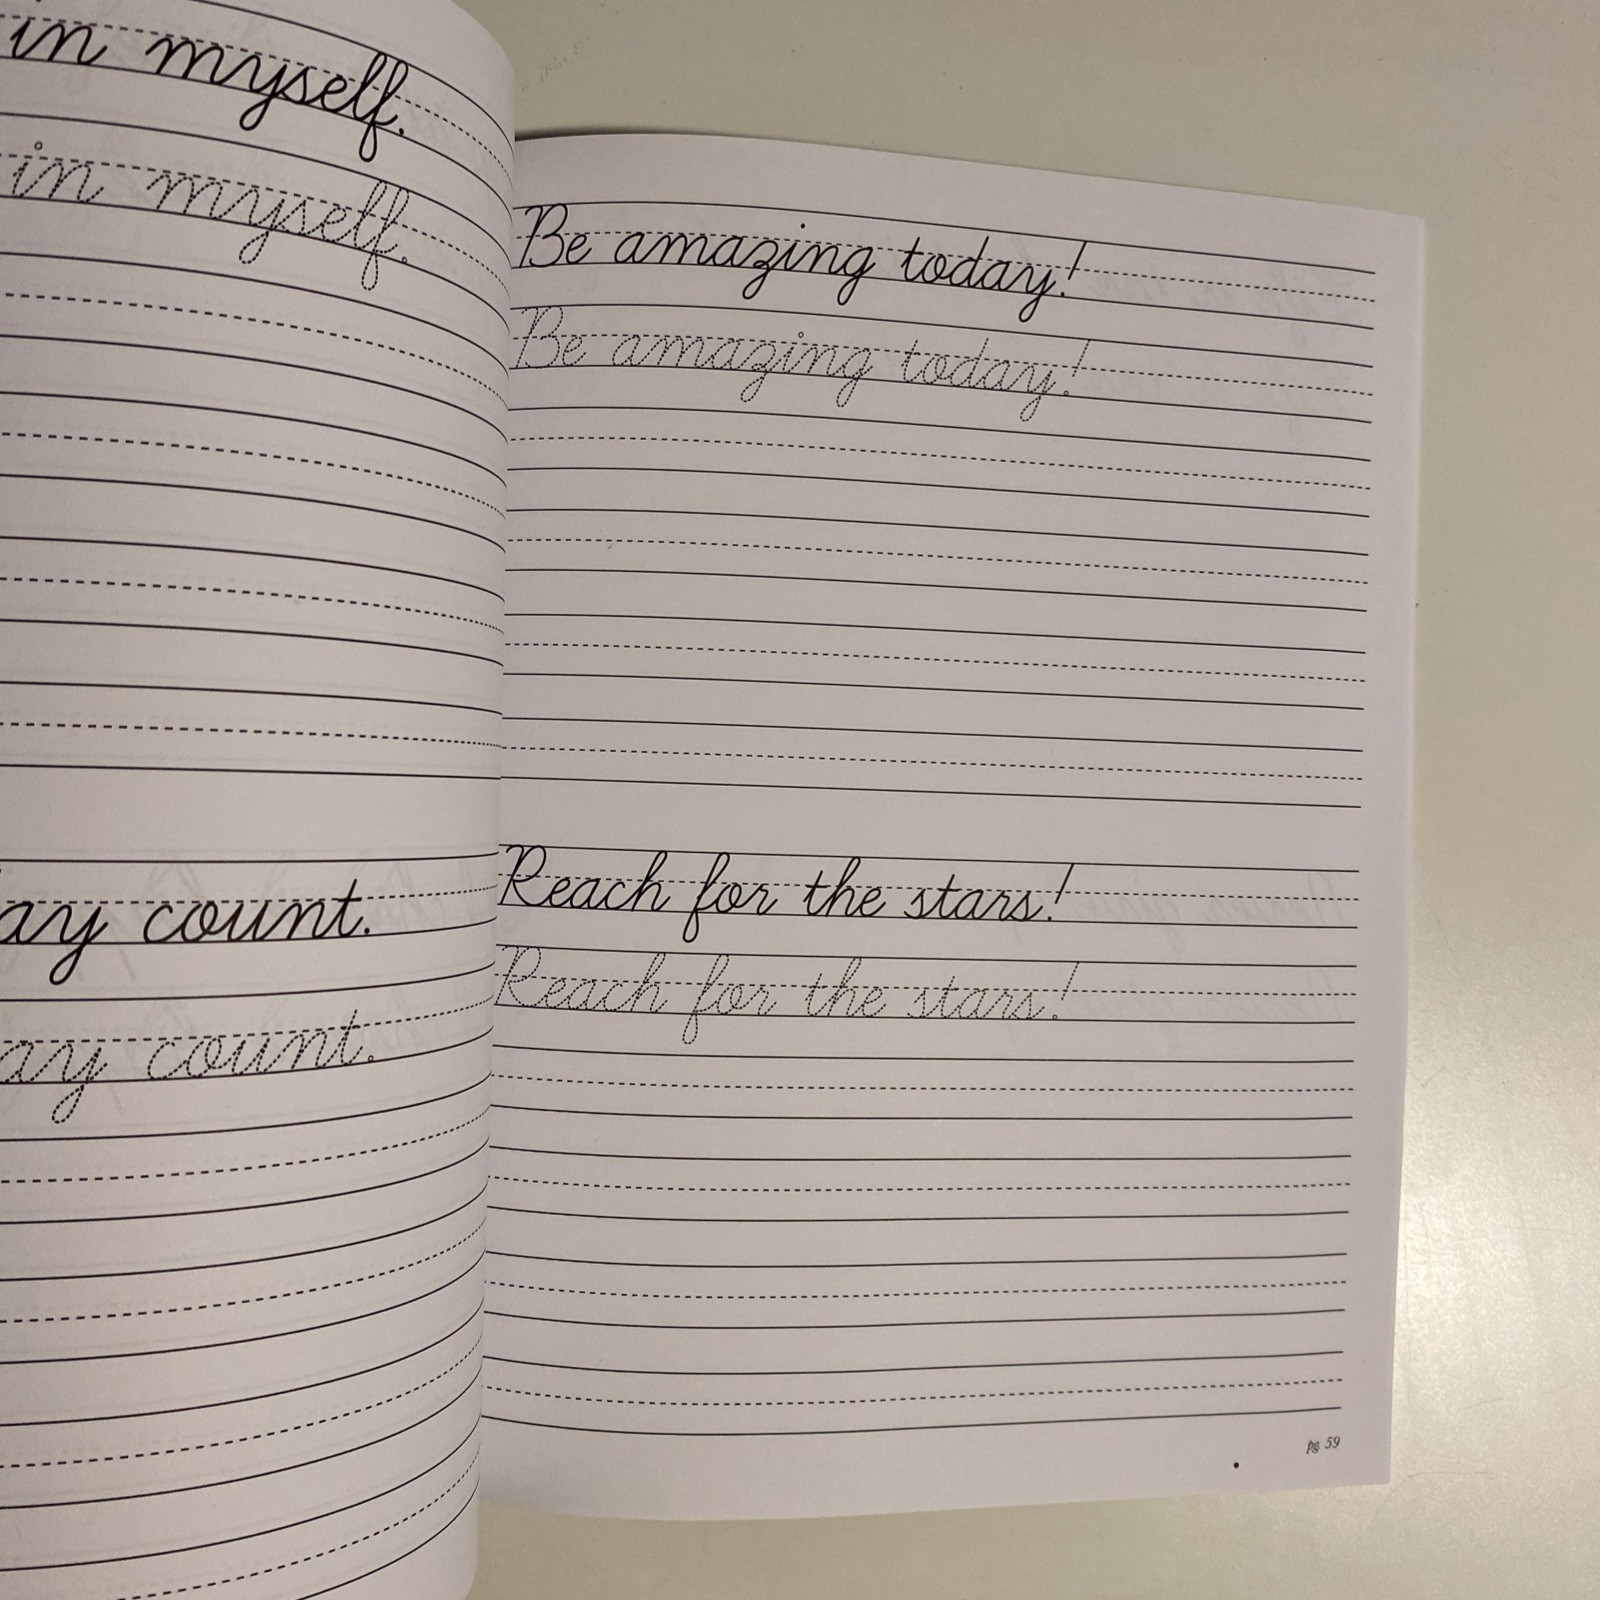 in myself.
in myself.
ay count.
ay count.
Be amazing today!
Be amazing today!
Reach for the stars!
Reach for the stars!
pg 59